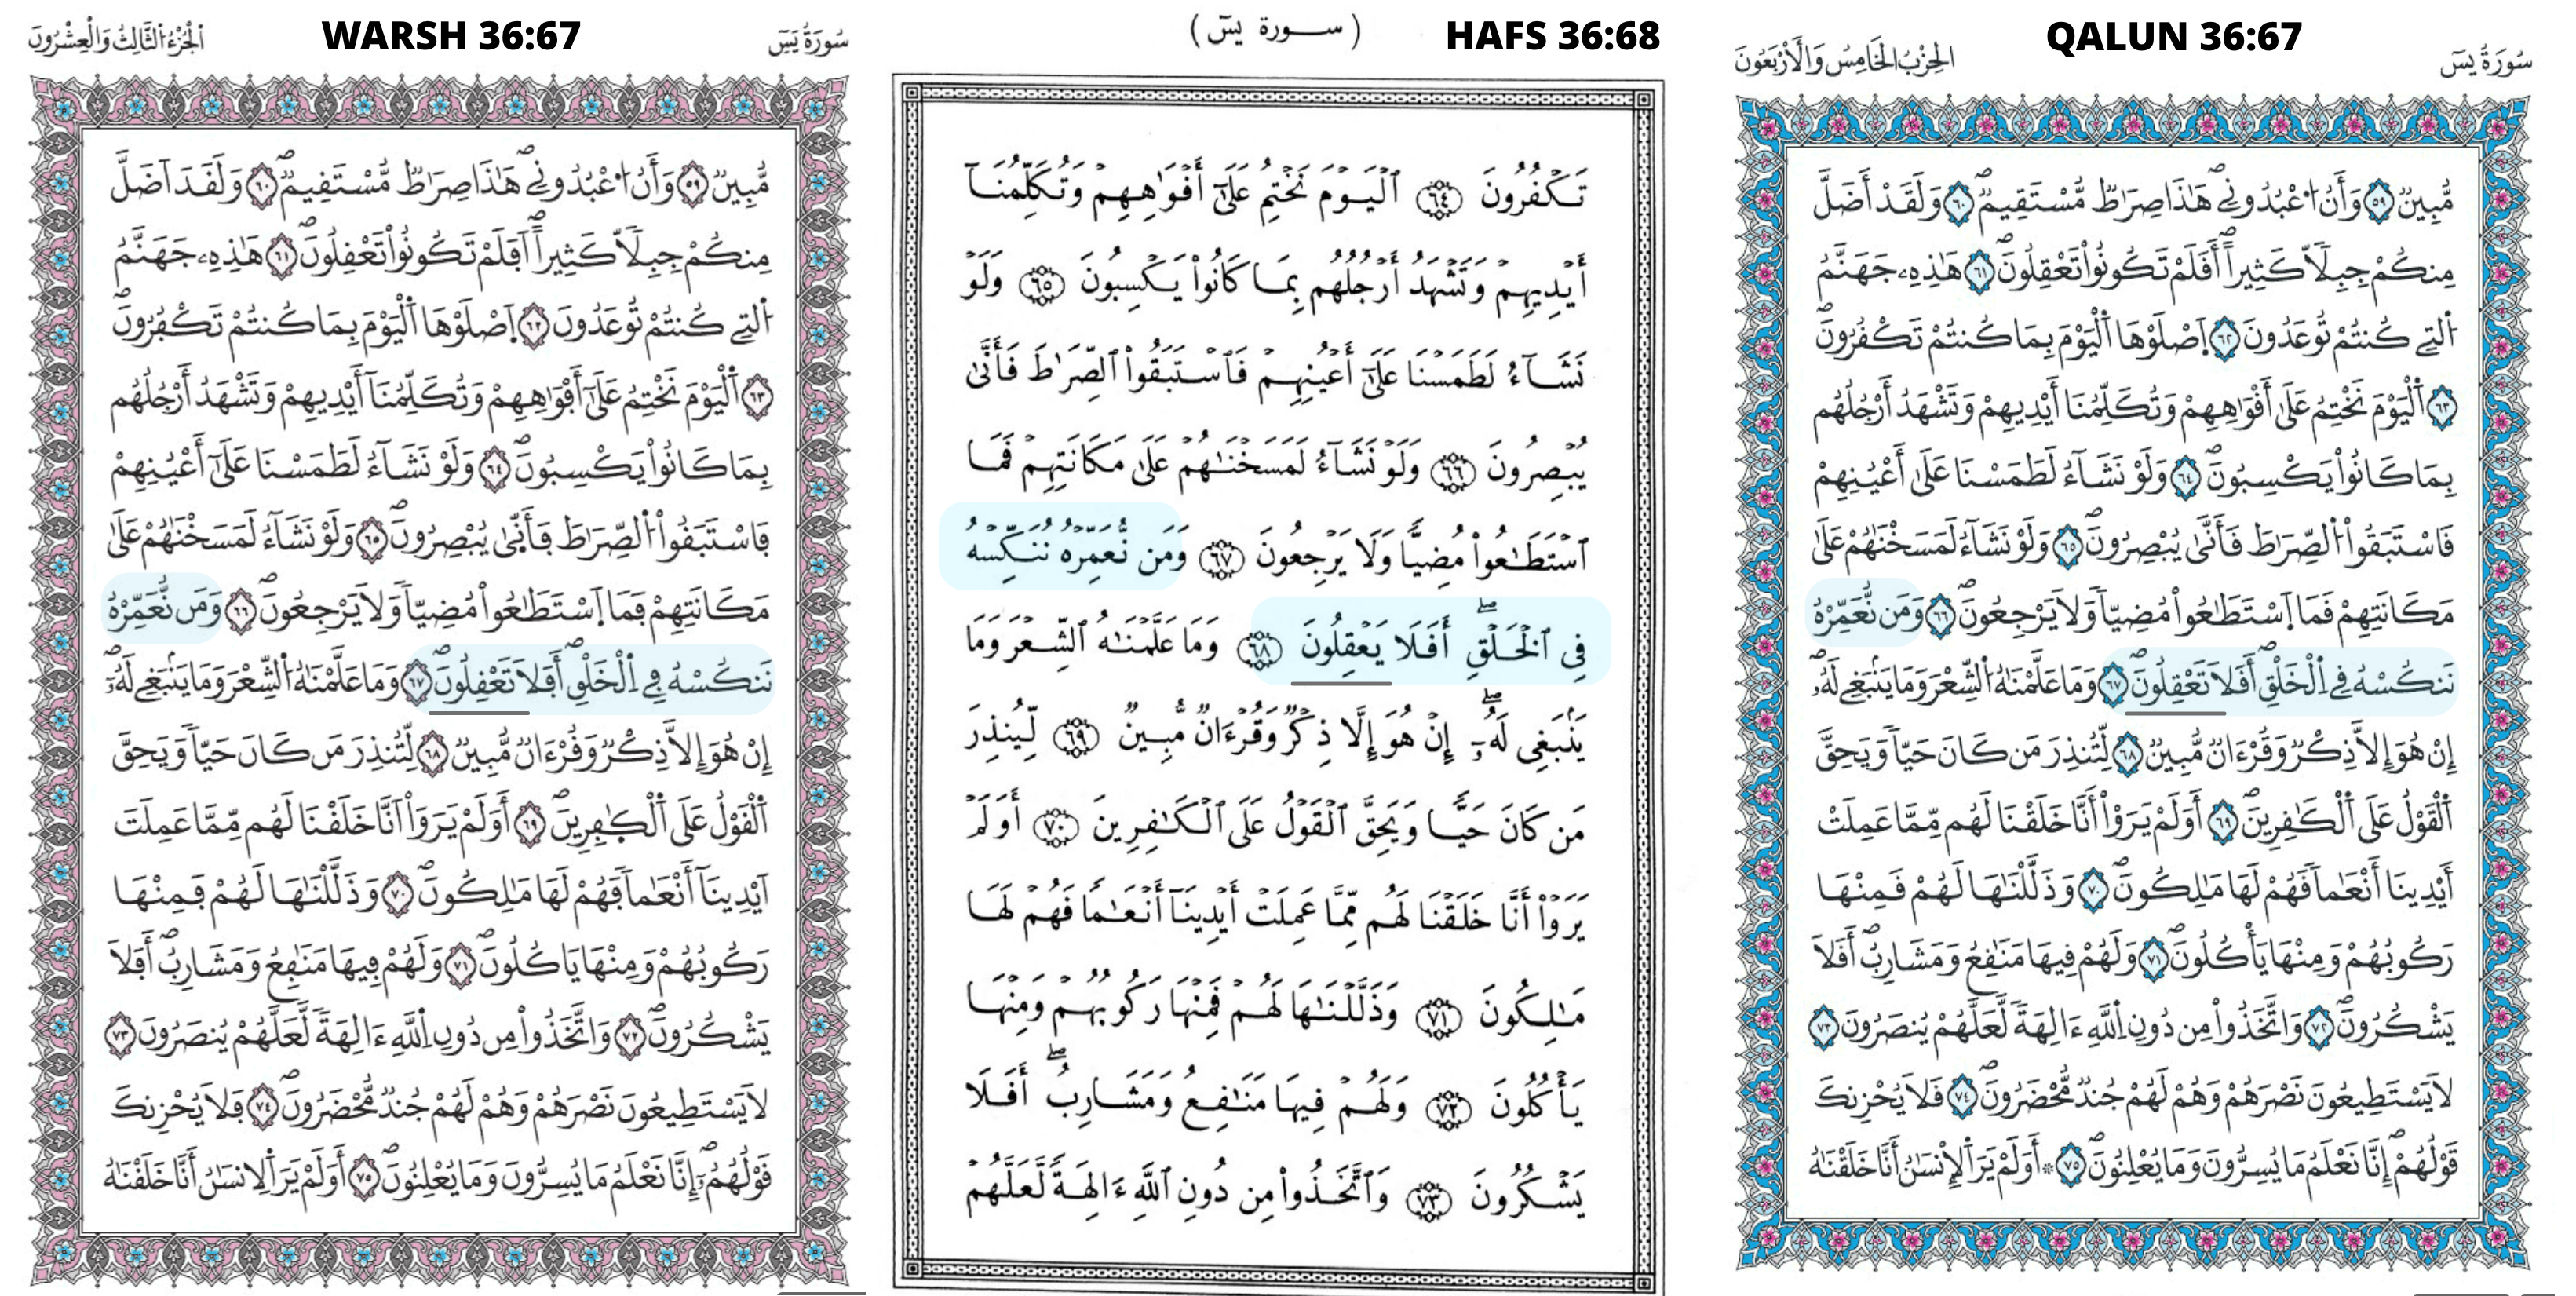 WARSH 36:67
سُورَةُ يَسٓ
اَلْجُزْءُ الثَّالِثُ وَالْعِشْرُونَ
مُّبِينٞ ٥٩ وَأَنُ اُ۟عْبُدُونِےۖ هَٰذَا صِرَٰطٞ مُّسْتَڧِيمٞۖ ٦٠ وَلَڧَدَ اَضَلَّ
مِنكُمْ جِبِلّاٗ كَثِيراًۖ اَڢَلَمْ تَكُونُواْ تَعْڧِلُونَۖ ٦١ هَٰذِهِۦ جَهَنَّمُ
اُ۬لتِے كُنتُمْ تُوعَدُونَ ٦٢ اَ۪صْلَوْهَا اَ۬لْيَوْمَ بِمَا كُنتُمْ تَكْڢُرُونَۖ
٦٣ اَ۬لْيَوْمَ نَخْتِمُ عَلَىٰٓ أَڢْوَٰهِهِمْ وَتُكَلِّمُنَآ أَيْدِيهِمْ وَتَشْهَدُ أَرْجُلُهُم
بِمَا كَانُواْ يَكْسِبُونَۖ ٦٤ وَلَوْ نَشَآءُ لَطَمَسْنَا عَلَىٰٓ أَعْيُنِهِمْ
ڢَاسْتَبَڧُواْ اُ۬لصِّرَٰطَ ڢَأَنّ۪ىٰ يُبْصِرُونَۖ ٦٥ وَلَوْ نَشَآءُ لَمَسَخْنَٰهُمْ عَلَىٰ
مَكَانَتِهِمْ ڢَمَا اَ۪سْتَطَٰعُواْ مُضِيّاٗ وَلَا يَرْجِعُونَۖ ٦٦ وَمَن نُّعَمِّرْهُ
نَنكُسْهُ ڢِے اِ۬لْخَلْڧِۖ أَڢَلَا تَعْڧِلُونَۖ ٦٧ وَمَا عَلَّمْنَٰهُ اُ۬لشِّعْرَ وَمَا يَنۢبَغِے لَهُۥٓۖ
إِنْ هُوَ إِلَّا ذِكْرٞ وَڧُرْءَانٞ مُّبِينٞ ٦٨ لِّتُنذِرَ مَن كَانَ حَيّاٗ وَيَحِڧَّ
اَ۬لْڧَوْلُ عَلَى اَ۬لْكٰ۪ڢِرِينَۖ ٦٩ أَوَلَمْ يَرَوَاْ اَنَّا خَلَڧْنَا لَهُم مِّمَّا عَمِلَتَ
اَيْدِينَآ أَنْعَٰماٗ ڢَهُمْ لَهَا مَٰلِكُونَۖ ٧٠ وَذَلَّلْنَٰهَا لَهُمْ ڢَمِنْهَا
رَكُوبُهُمْ وَمِنْهَا يَاكُلُونَۖ ٧١ وَلَهُمْ ڢِيهَا مَنَٰڢِعُ وَمَشَارِبُۖ أَڢَلَا
يَشْكُرُونَۖ ٧٢ وَاتَّخَذُواْ مِن دُونِ اِ۬للَّهِ ءَالِهَةٗ لَّعَلَّهُمْ يُنصَرُونَ ٧٣
لَا يَسْتَطِيعُونَ نَصْرَهُمْ وَهُمْ لَهُمْ جُندٞ مُّحْضَرُونَۖ ٧٤ ڢَلَا يُحْزِنكَ
ڧَوْلُهُمُۥٓۖ إِنَّا نَعْلَمُ مَا يُسِرُّونَ وَمَا يُعْلِنُونَۖ ٧٥ أَوَلَمْ يَرَ اَ۬لِانسَٰنُ أَنَّا خَلَڧْنَٰهُ
HAFS 36:68
( سورة يسٓ )
تَكْفُرُونَ ٦٤ ٱلْيَوْمَ نَخْتِمُ عَلَىٰٓ أَفْوَٰهِهِمْ وَتُكَلِّمُنَآ
أَيْدِيهِمْ وَتَشْهَدُ أَرْجُلُهُم بِمَا كَانُوا۟ يَكْسِبُونَ ٦٥ وَلَوْ
نَشَآءُ لَطَمَسْنَا عَلَىٰٓ أَعْيُنِهِمْ فَٱسْتَبَقُوا۟ ٱلصِّرَٰطَ فَأَنَّىٰ
يُبْصِرُونَ ٦٦ وَلَوْ نَشَآءُ لَمَسَخْنَٰهُمْ عَلَىٰ مَكَانَتِهِمْ فَمَا
ٱسْتَطَٰعُوا۟ مُضِيًّا وَلَا يَرْجِعُونَ ٦٧ وَمَن نُّعَمِّرْهُ نُنَكِّسْهُ
فِى ٱلْخَلْقِۖ أَفَلَا يَعْقِلُونَ ٦٨ وَمَا عَلَّمْنَٰهُ ٱلشِّعْرَ وَمَا
يَنۢبَغِى لَهُۥٓۖ إِنْ هُوَ إِلَّا ذِكْرٌ وَقُرْءَانٌ مُّبِينٌ ٦٩ لِّيُنذِرَ
مَن كَانَ حَيًّا وَيَحِقَّ ٱلْقَوْلُ عَلَى ٱلْكَٰفِرِينَ ٧٠ أَوَلَمْ
يَرَوْا۟ أَنَّا خَلَقْنَا لَهُم مِّمَّا عَمِلَتْ أَيْدِينَآ أَنْعَٰمًا فَهُمْ لَهَا
مَٰلِكُونَ ٧١ وَذَلَّلْنَٰهَا لَهُمْ فَمِنْهَا رَكُوبُهُمْ وَمِنْهَا
يَأْكُلُونَ ٧٢ وَلَهُمْ فِيهَا مَنَٰفِعُ وَمَشَارِبُۖ أَفَلَا
يَشْكُرُونَ ٧٣ وَٱتَّخَذُوا۟ مِن دُونِ ٱللَّهِ ءَالِهَةً لَّعَلَّهُمْ
QALUN 36:67
سُورَةُ يَسٓ
اَلْحِزْبُ الْخَامِسُ وَالْأَرْبَعُونَ
مُّبِينٞ ٥٩ وَأَنُ اُ۟عْبُدُونِےۖ هَٰذَا صِرَٰطٞ مُّسْتَقِيمٞۖ ٦٠ وَلَقَدْ أَضَلَّ
مِنكُمْ جِبِلّاٗ كَثِيراًۖ أَفَلَمْ تَكُونُواْ تَعْقِلُونَۖ ٦١ هَٰذِهِۦ جَهَنَّمُ
اُ۬لتِے كُنتُمْ تُوعَدُونَ ٦٢ اَ۪صْلَوْهَا اَ۬لْيَوْمَ بِمَا كُنتُمْ تَكْفُرُونَۖ
٦٣ اَ۬لْيَوْمَ نَخْتِمُ عَلَىٰ أَفْوَٰهِهِمْ وَتُكَلِّمُنَا أَيْدِيهِمْ وَتَشْهَدُ أَرْجُلُهُم
بِمَا كَانُواْ يَكْسِبُونَۖ ٦٤ وَلَوْ نَشَآءُ لَطَمَسْنَا عَلَىٰ أَعْيُنِهِمْ
فَاسْتَبَقُواْ اُ۬لصِّرَٰطَ فَأَنَّىٰ يُبْصِرُونَۖ ٦٥ وَلَوْ نَشَآءُ لَمَسَخْنَٰهُمْ عَلَىٰ
مَكَانَتِهِمْ فَمَا اَ۪سْتَطَٰعُواْ مُضِيّاٗ وَلَا يَرْجِعُونَۖ ٦٦ وَمَن نُّعَمِّرْهُ
نَنكُسْهُ فِے اِ۬لْخَلْقِۖ أَفَلَا تَعْقِلُونَۖ ٦٧ وَمَا عَلَّمْنَٰهُ اُ۬لشِّعْرَ وَمَا يَنۢبَغِے لَهُۥۖ
إِنْ هُوَ إِلَّا ذِكْرٞ وَقُرْءَانٞ مُّبِينٞ ٦٨ لِّتُنذِرَ مَن كَانَ حَيّاٗ وَيَحِقَّ
اَ۬لْقَوْلُ عَلَى اَ۬لْكَٰفِرِينَۖ ٦٩ أَوَلَمْ يَرَوْاْ أَنَّا خَلَقْنَا لَهُم مِّمَّا عَمِلَتْ
أَيْدِينَا أَنْعَٰماٗ فَهُمْ لَهَا مَٰلِكُونَۖ ٧٠ وَذَلَّلْنَٰهَا لَهُمْ فَمِنْهَا
رَكُوبُهُمْ وَمِنْهَا يَأْكُلُونَۖ ٧١ وَلَهُمْ فِيهَا مَنَٰفِعُ وَمَشَارِبُۖ أَفَلَا
يَشْكُرُونَۖ ٧٢ وَاتَّخَذُواْ مِن دُونِ اِ۬للَّهِ ءَالِهَةٗ لَّعَلَّهُمْ يُنصَرُونَ ٧٣
لَا يَسْتَطِيعُونَ نَصْرَهُمْ وَهُمْ لَهُمْ جُندٞ مُّحْضَرُونَۖ ٧٤ فَلَا يُحْزِنكَ
قَوْلُهُمْۖ إِنَّا نَعْلَمُ مَا يُسِرُّونَ وَمَا يُعْلِنُونَۖ ٧٥ * أَوَلَمْ يَرَ اَ۬لْإِنسَٰنُ أَنَّا خَلَقْنَٰهُ